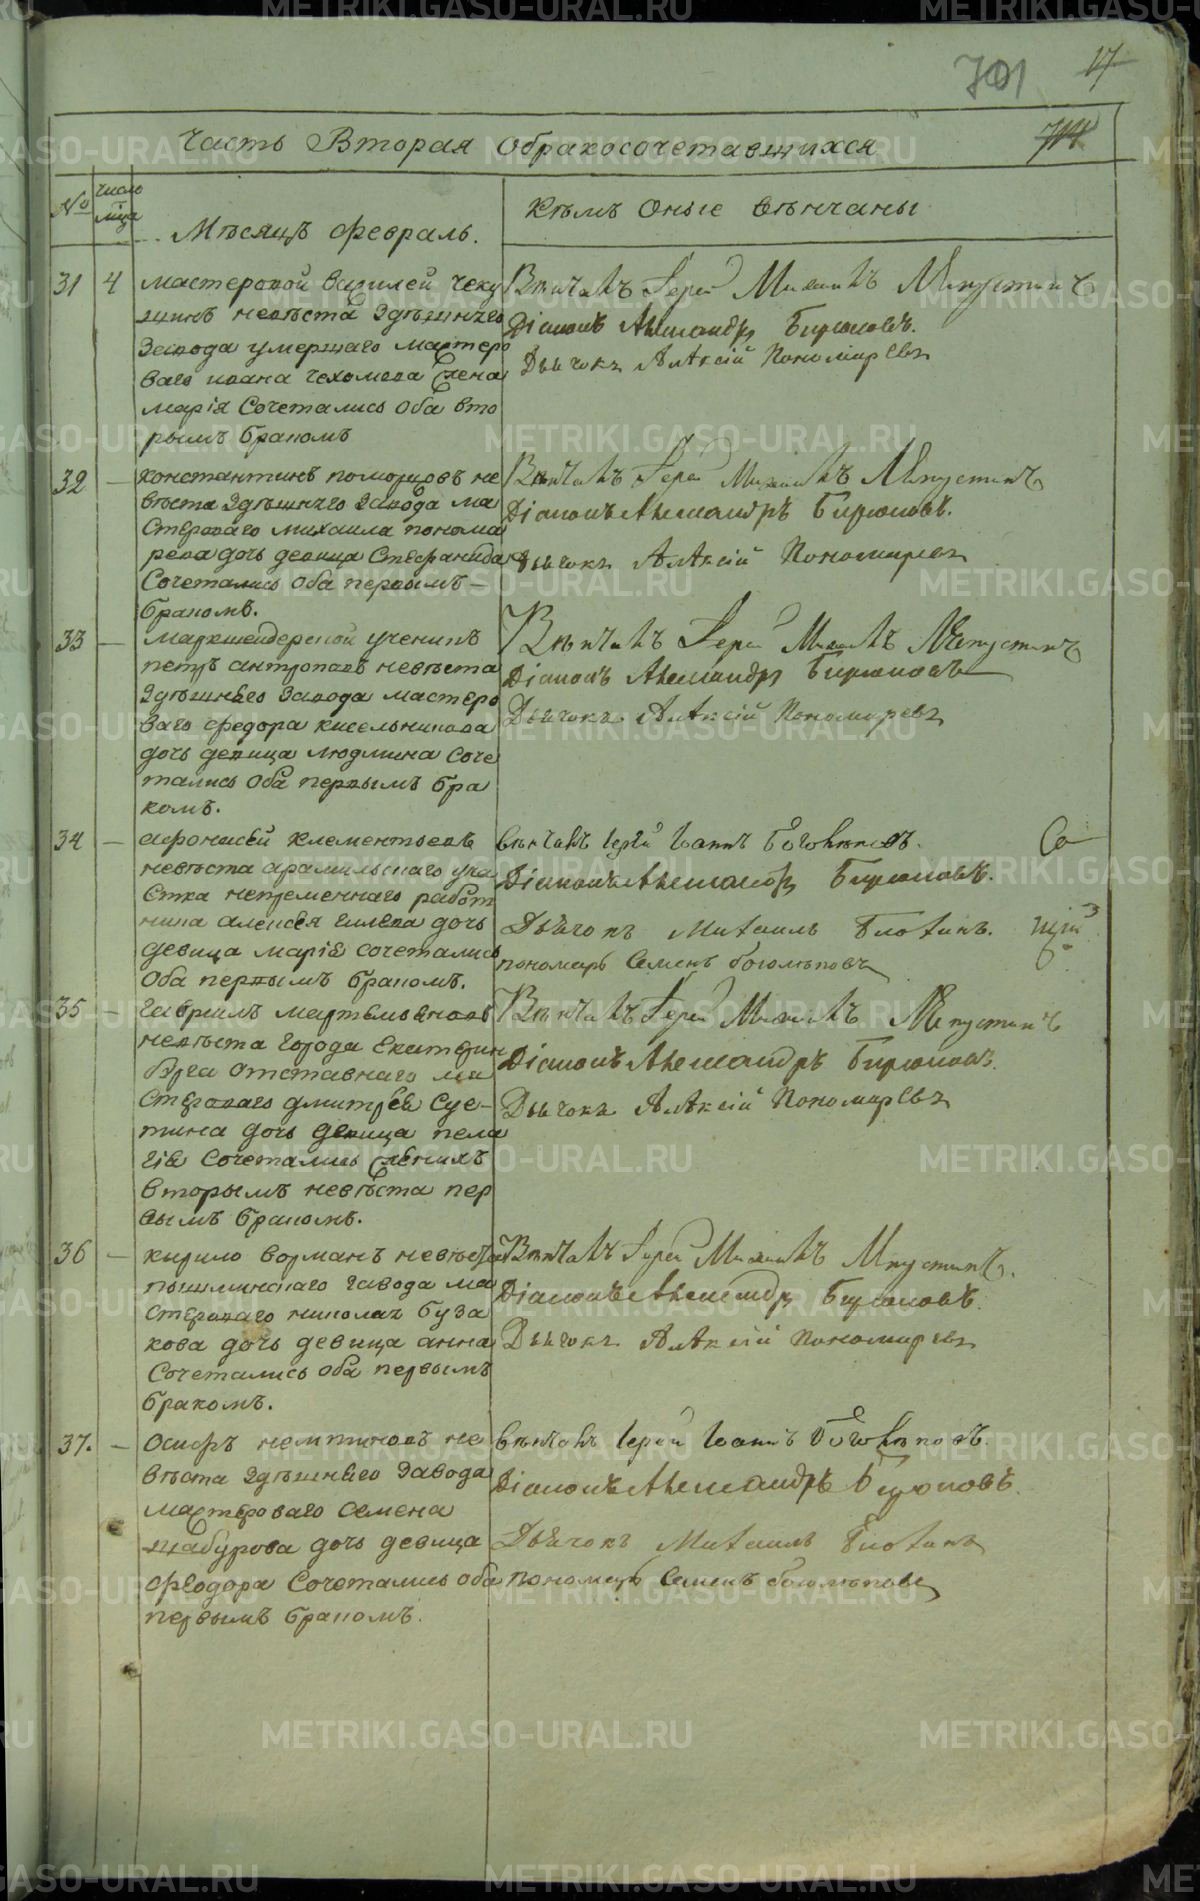 701 17
Часть Вторая обракосочетавшихся 714
№ число мца
Месяцъ февраль.
Кемъ Оные венчаны
31 4 мастеровой Василей Чеку
шинъ невѣста Здѣшнѣго
Завода умершаго мастеро
ваго ивана чехомова Жена
марія Сочетались Оба вто
рымъ бракомъ
Вѣнчалъ Іерей Михаилъ
Діаконъ Александръ Бирюковъ.
Дьячокъ Алѣксій Пономаревъ
32 — константинъ поморцовъ не
вѣста Здѣшнѣго Завода ма
стероваго михаила понома
рева дочь девица Стефанида
Сочетались Оба первымъ —
бракомъ.
Вѣнчалъ Іерей Михаилъ
Діаконъ Александръ Бирюковъ.
Дьячокъ Алѣксій Пономаревъ
33 — Маркшейдерской ученикъ
петръ антроповъ невѣста
Здѣшнѣго Завода мастеро
ваго федора кисельникова
дочь девица людмила Соче
тались Оба первымъ бра
комъ.
Вѣнчалъ Іерей Михаилъ
Діаконъ Александръ Бирюковъ
Дьячокъ Алѣксій Пономаревъ
34 — афонасѣй Клементьевъ
невѣста арамильскаго уча
стка непременнаго работ
ника алексея дочь
девица маріѣ сочетались
Оба первымъ бракомъ.
вѣнчалъ Іерей Іоаннъ Боголѣповъ. Со
Діаконъ Александръ Бирюковъ.
Дьячокъ Михаилъ
пономарь Семенъ боголѣповъ
35 — гавриилъ мартемьяновъ
невѣста города Екатерин
бурга Отставнаго ма
стероваго дмитрѣѣ Суе-
тина дочь девица пела
гіѣ Сочетались Женихъ
вторымъ невѣста пер
вымъ бракомъ.
Вѣнчалъ Іерей Михаилъ
Діаконъ Александръ Бирюковъ.
Дьячокъ Алѣксій Пономаревъ
36 — кирило ворманъ невѣста
пышминскаго завода ма
стероваго николая буза
кова дочь девица анна
Сочетались оба первымъ
бракомъ.
Вѣнчалъ Іерей Михаилъ
Діаконъ Александръ Бирюковъ.
Дьячокъ Алѣксій Пономаревъ
37. — Осипъ немтиновъ не
вѣста Здѣшнѣго Завода
мастероваго Семена
шабурова дочь девица
феодора Сочетались оба
первымъ бракомъ.
вѣнчалъ Іерей Іоаннъ Боголѣповъ.
Діаконъ Александръ Бирюковъ.
Дьячокъ Михаилъ
пономарь Семенъ боголѣповъ
METRIKI.GASO-URAL.RU